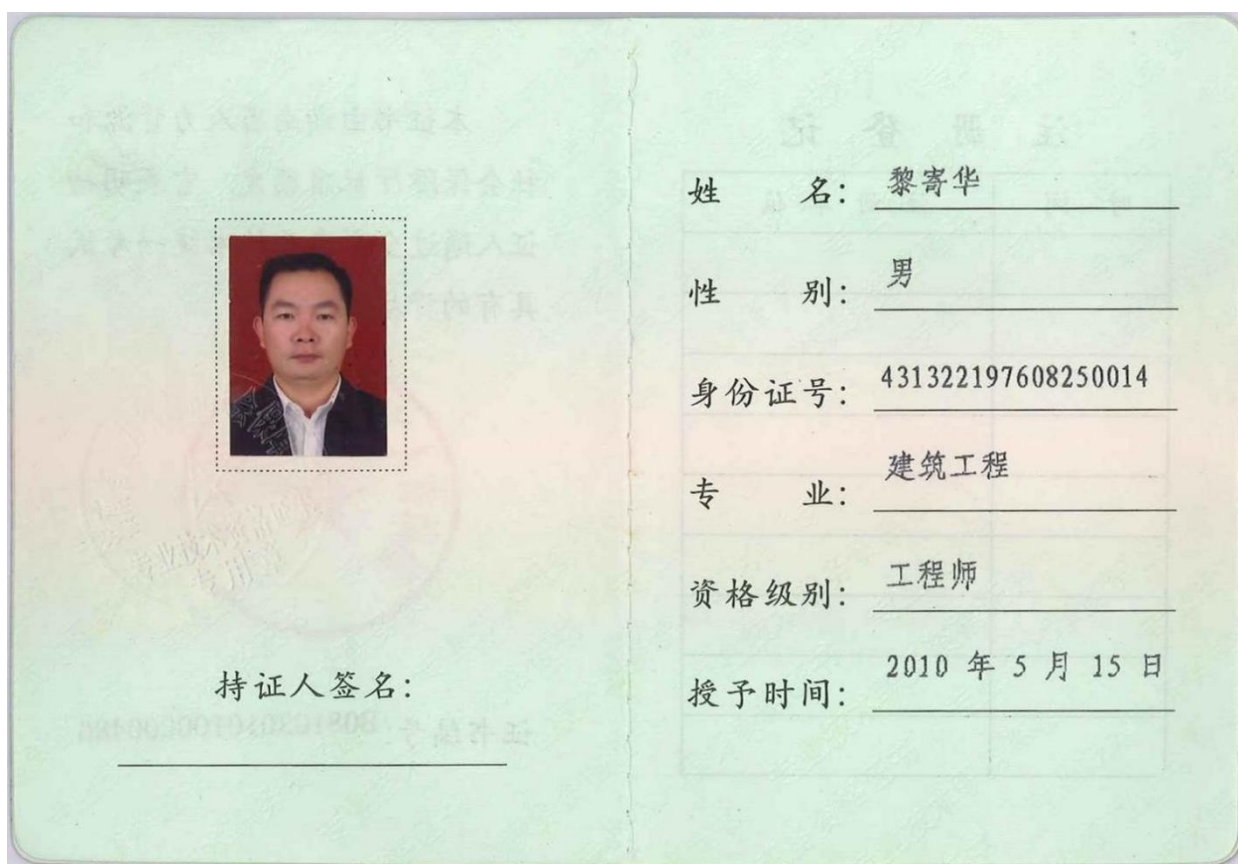 专业技术
专用章
持证人签名：
姓 名： 黎寄华
性 别： 男
身份证号： 431322197608250014
专 业： 建筑工程
资格级别： 工程师
授予时间： 2010 年 5 月 15 日